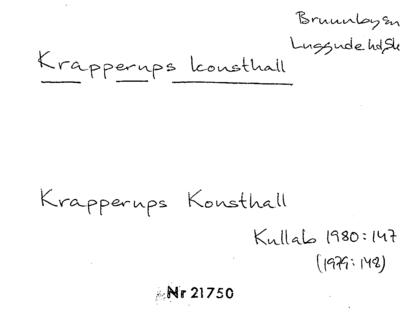 Brunnby sn
Luggude hd, Sk
Krapperups konsthall
Krapperups Konsthall
Kullab 1980:147
(1979:148)
Nr 21750